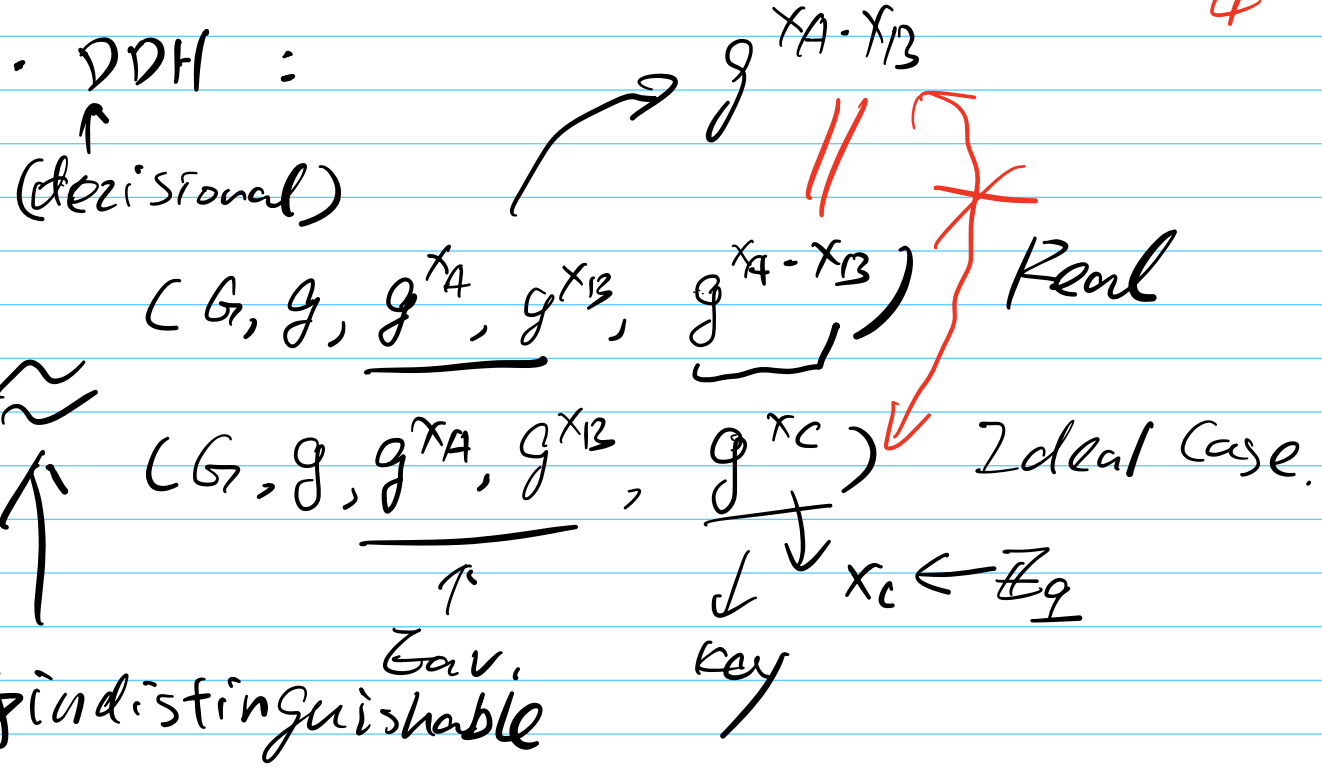 · DDH : g^{x_A · x_B}
(dezisional)
(G, g, g^{x_A}, g^{x_B}, g^{x_A · x_B}) Real
≈
(G, g, g^{x_A}, g^{x_B}, g^{x_C}) Ideal Case.
x_C ← Z_q
Eav. Key
indistinguishable